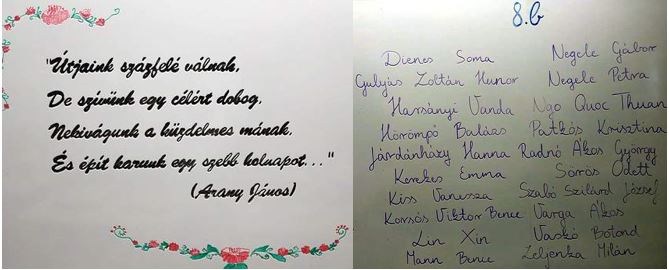 "Útjaink százfelé válnak,
De szívünk egy célért dobog,
Nekivágunk a küzdelmes mának,
És épít karunk egy szebb holnapot..."
(Arany János)
8.b
Dienes Soma
Gulyás Zoltán Hunor
Harsányi Vanda
Hörömpő Balázs
Járdánházy Hanna
Kerekes Emma
Kiss Vanessza
Korsós Viktor Bence
Lin Xin
Mann Bence
Negele Gábor
Negele Petra
Ngo Quoc Thuan
Patkós Krisztina
Radnó Ákos György
Sörös Odett
Szabó Szilárd József
Varga Ákos
Vaskó Botond
Zeljenka Milán